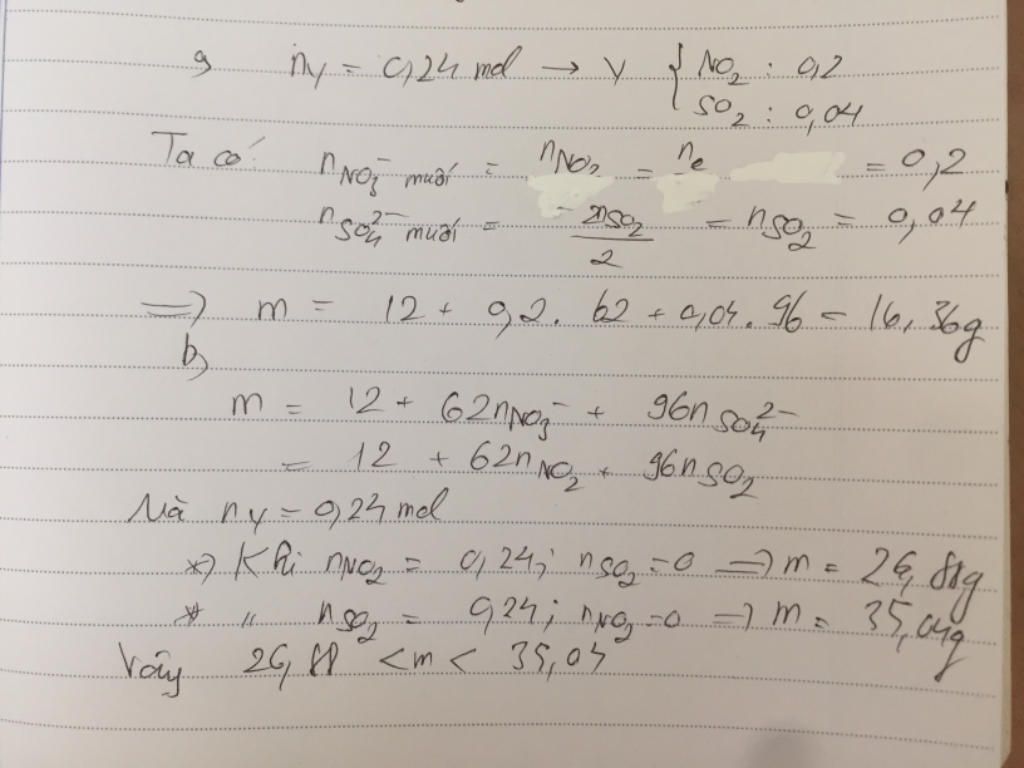 a, n_Y = 0,24 mol → Y { NO₂ : 0,2
SO₂ : 0,04
Ta có: n_NO₃⁻ muối = n_NO₂ = n_e = 0,2
n_SO₄²⁻ muối = 2n_SO₂/2 = n_SO₂ = 0,04
=> m = 12 + 0,2 . 62 + 0,04 . 96 = 16,36g
b,
m = 12 + 62n_NO₃⁻ + 96n_SO₄²⁻
= 12 + 62n_NO₂ + 96n_SO₂
Mà n_Y = 0,24 mol
*) Khi n_NO₂ = 0,24; n_SO₂ = 0 => m = 26,88g
* " n_SO₂ = 0,24; n_NO₂ = 0 => m = 35,04g
Vậy 26,88 < m < 35,04